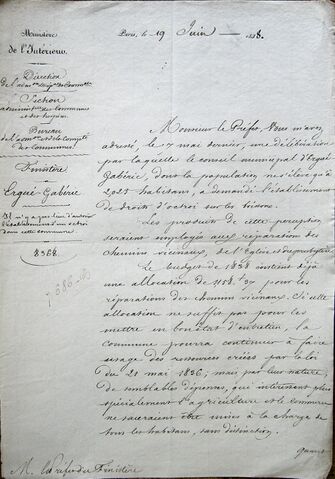 Ministère
de l'Intérieur.
Direction
Section
administ.ve des Communes
et des hospices.
Bureau
des Communes.
Finistère
Ergué-Gabéric
Il n'y a pas lieu d'autoriser
l'établissement d'un octroi
dans cette commune.
8368.
Paris, le 19 Juin 1838.
Monsieur le Préfet, Vous m'avez
adressé, le 7 mai dernier, une délibération
par laquelle le conseil municipal d'Ergué
Gabéric, dont la population ne s'élève qu'à
2,023 habitans, a demandé l'établissement
de droits d'octroi sur les boissons.
Les produits de cette perception
seraient employés aux réparations des
chemins vicinaux, de l'Eglise et du presbytère.
Le budget de 1838 contient déjà
une allocation de pour les
réparations des chemins vicinaux. Si cette
allocation ne suffit pas pour les
mettre en bon état d'entretien, la
commune pourra continuer à faire
usage des ressources créées par la loi
du 21 mai 1836; mais par leur nature,
de semblables dépenses, qui intéressent plus
spécialement l'agriculture et le commerce
ne sauraient être mises à la charge de
tous les habitans, sans distinction.
quant
M. le Préfet du Finistère